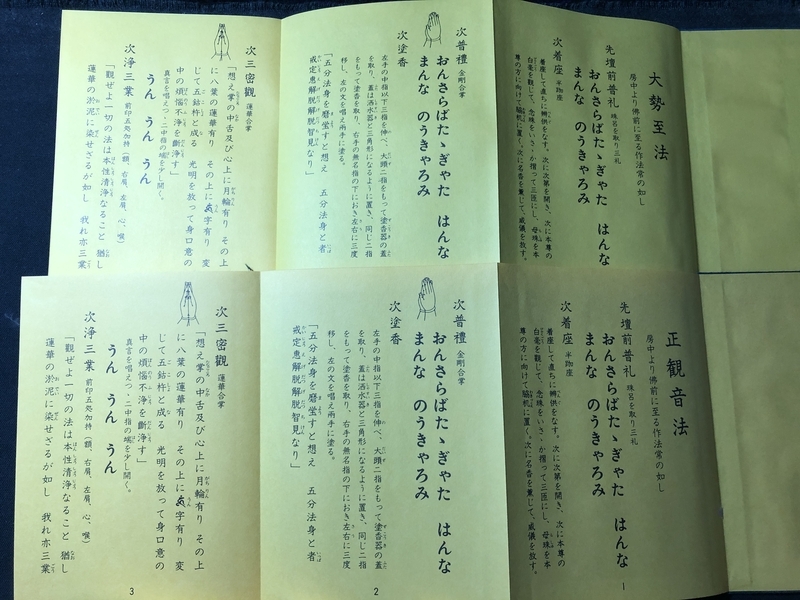 大勢至法
房中より佛前に至る作法常の如し
先壇前普礼 珠呂を取り三礼
おんさらばたゝぎゃた はんな
まんな のうきゃろみ
次着座 半跏座
着座して直ちに辨供をなす。次に次第を開き、次に本尊の
白毫を觀じて、念珠をいさゝか摺って三匝にし、母珠を本
尊の方に向けて脇机に置く。次に名香を薫じて、威儀を放す。
次普禮 金剛合掌
おんさらばたゝぎゃた はんな
まんな のうきゃろみ
次塗香
左手の中指以下三指を伸べ、大頭二指をもって塗香器の蓋
を取り、蓋は洒水器と三角形になるように置き、同じ二指
をもって塗香を取り、右手の無名指の下におき左右に三度
移し、左の文を唱え兩手に塗る。
「五分法身を磨瑩すと想え 五分法身と者
戒定恵解脱解脱智見なり」
次三密觀 蓮華合掌
「想え掌の中舌及び心上に月輪有り その上
に八葉の蓮華有り その上に字有り 変
じて五鈷杵と成る 光明を放って身口意の
中の煩惱不浄を斷浄す」
真言を唱えつゝ二中指の端を少し開く。
次浄三業 前印五処加持(額、右肩、左肩、心、喉)
うん うん うん
「觀ぜよ一切の法は本性清浄なること 猶し
蓮華の淤泥に染せざるが如し 我れ亦三業
正観音法
房中より佛前に至る作法常の如し
先壇前普礼 珠呂を取り三礼
おんさらばたゝぎゃた はんな
まんな のうきゃろみ
次着座 半跏座
着座して直ちに辨供をなす。次に次第を開き、次に本尊の
白毫を觀じて、念珠をいさゝか摺って三匝にし、母珠を本
尊の方に向けて脇机に置く。次に名香を薫じて、威儀を放す。
1
次普禮 金剛合掌
おんさらばたゝぎゃた はんな
まんな のうきゃろみ
次塗香
左手の中指以下三指を伸べ、大頭二指をもって塗香器の蓋
を取り、蓋は洒水器と三角形になるように置き、同じ二指
をもって塗香を取り、右手の無名指の下におき左右に三度
移し、左の文を唱え兩手に塗る。
「五分法身を磨瑩すと想え 五分法身と者
戒定恵解脱解脱智見なり」
2
次三密觀 蓮華合掌
「想え掌の中舌及び心上に月輪有り その上
に八葉の蓮華有り その上に字有り 変
じて五鈷杵と成る 光明を放って身口意の
中の煩惱不浄を斷浄す」
真言を唱えつゝ二中指の端を少し開く。
次浄三業 前印五処加持(額、右肩、左肩、心、喉)
うん うん うん
「觀ぜよ一切の法は本性清浄なること 猶し
蓮華の淤泥に染せざるが如し 我れ亦三業
3